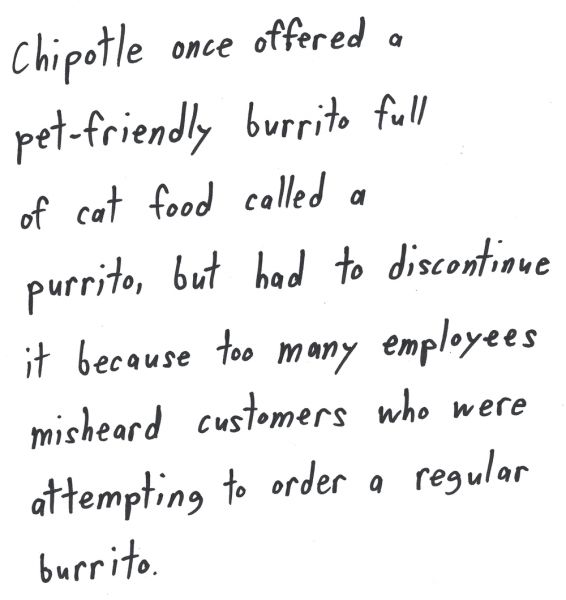 Chipotle once offered a
pet-friendly burrito full
of cat food called a
purrito, but had to discontinue
it because too many employees
misheard customers who were
attempting to order a regular
burrito.